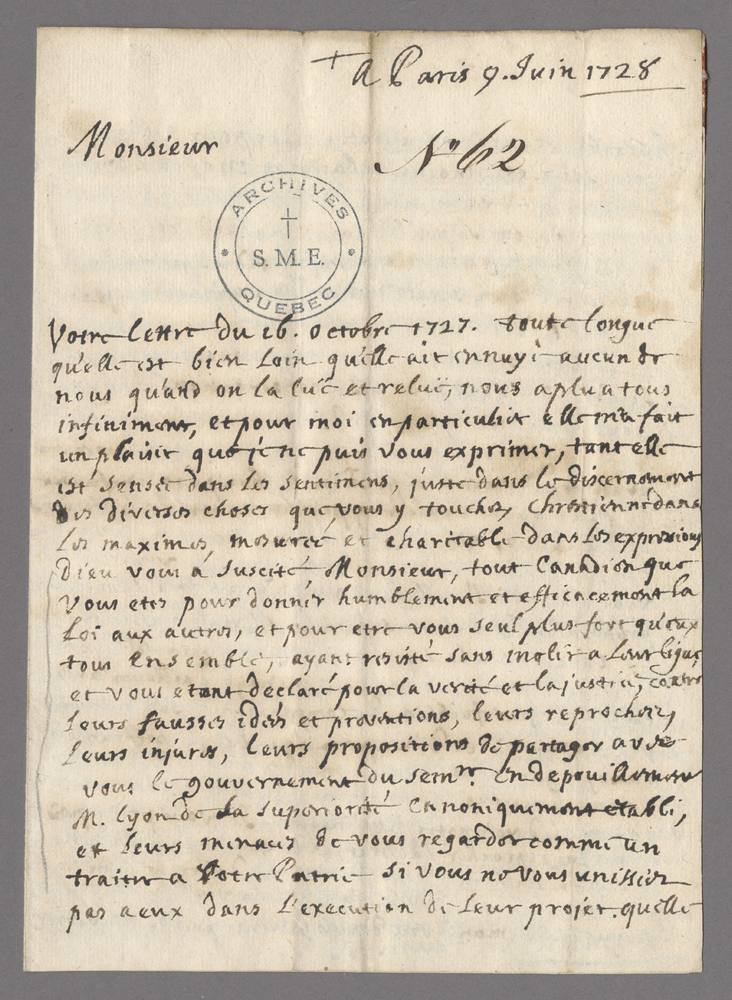 + A Paris 9. Juin 1728
Monsieur
N° 62
ARCHIVES
S. M. E.
QUEBEC
Votre lettre du 16. octobre 1727. toute longue
qu'elle est bien loin qu'elle ait ennuyé aucun de
nous quand on la luë et reluë, nous a plu a tous
infiniment, et pour moi en particulier elle m'a fait
un plaisir que je ne puis vous exprimer, tant elle
est sensée dans les sentimens, juste dans le discernement
des diverses choses que vous y touchez, Chrétienne dans
les maximes, mesurée et charitable dans les expressions
Dieu vous a suscité, Monsieur, tout Canadien que
vous etes pour donner humblement et efficacement la
Loi aux autres, et pour etre vous seul plus fort qu'eux
tous ensemble, ayant resisté sans molir a leur ligue,
et vous etant declaré pour la verité et la justice, contre
leurs fausses idées et preventions, leurs reproches,
leurs injures, leurs propositions de partager avec
vous le gouvernement du Semre. en depouillement
M. Lyon de la superiorité canoniquement etabli,
et leurs menaces de vous regarder comme un
traitre a Votre Patrie si vous ne vous unissiez
pas a eux dans l'execution de leur projet. quelle